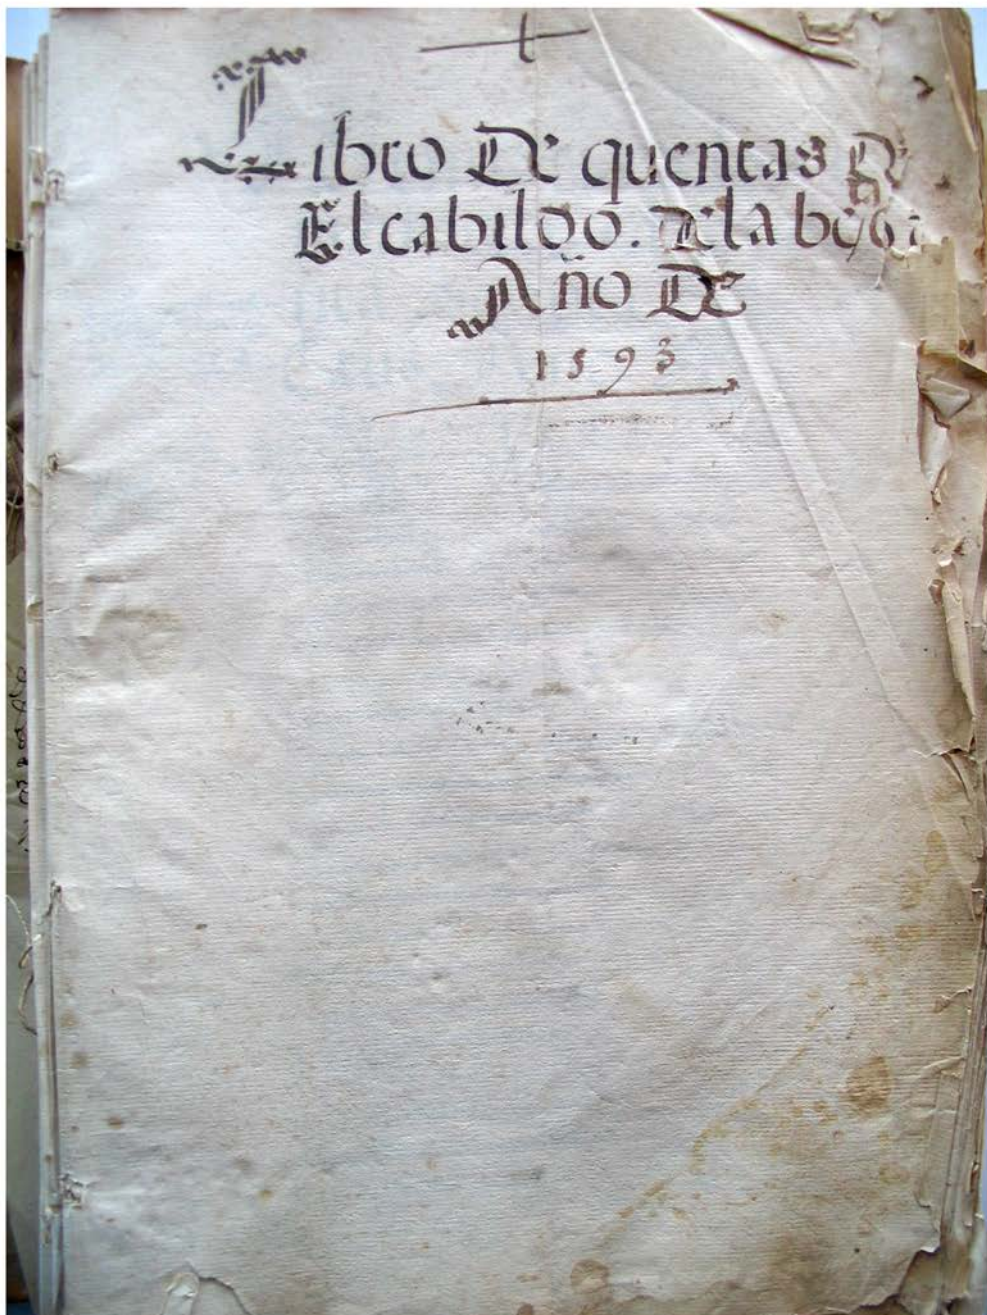 Libro De quentas De
El cabildo. dela
Año De
1593